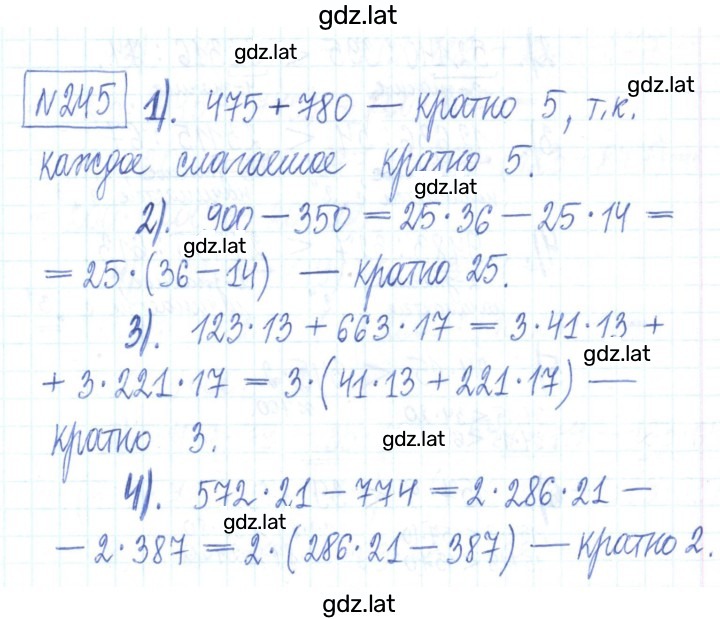 gdz.lat
gdz.lat
№245 1). 475 + 780 — кратно 5, т.к.
gdz.lat
каждое слагаемое кратно 5.
gdz.lat
2). 900 − 350 = 25·36 − 25·14 =
gdz.lat
= 25·(36 − 14) — кратно 25.
3). 123·13 + 663·17 = 3·41·13 +
gdz.lat
+ 3·221·17 = 3·(41·13 + 221·17) —
кратно 3.
gdz.lat
4). 572·21 − 774 = 2·286·21 −
gdz.lat
− 2·387 = 2·(286·21 − 387) — кратно 2.
gdz.lat